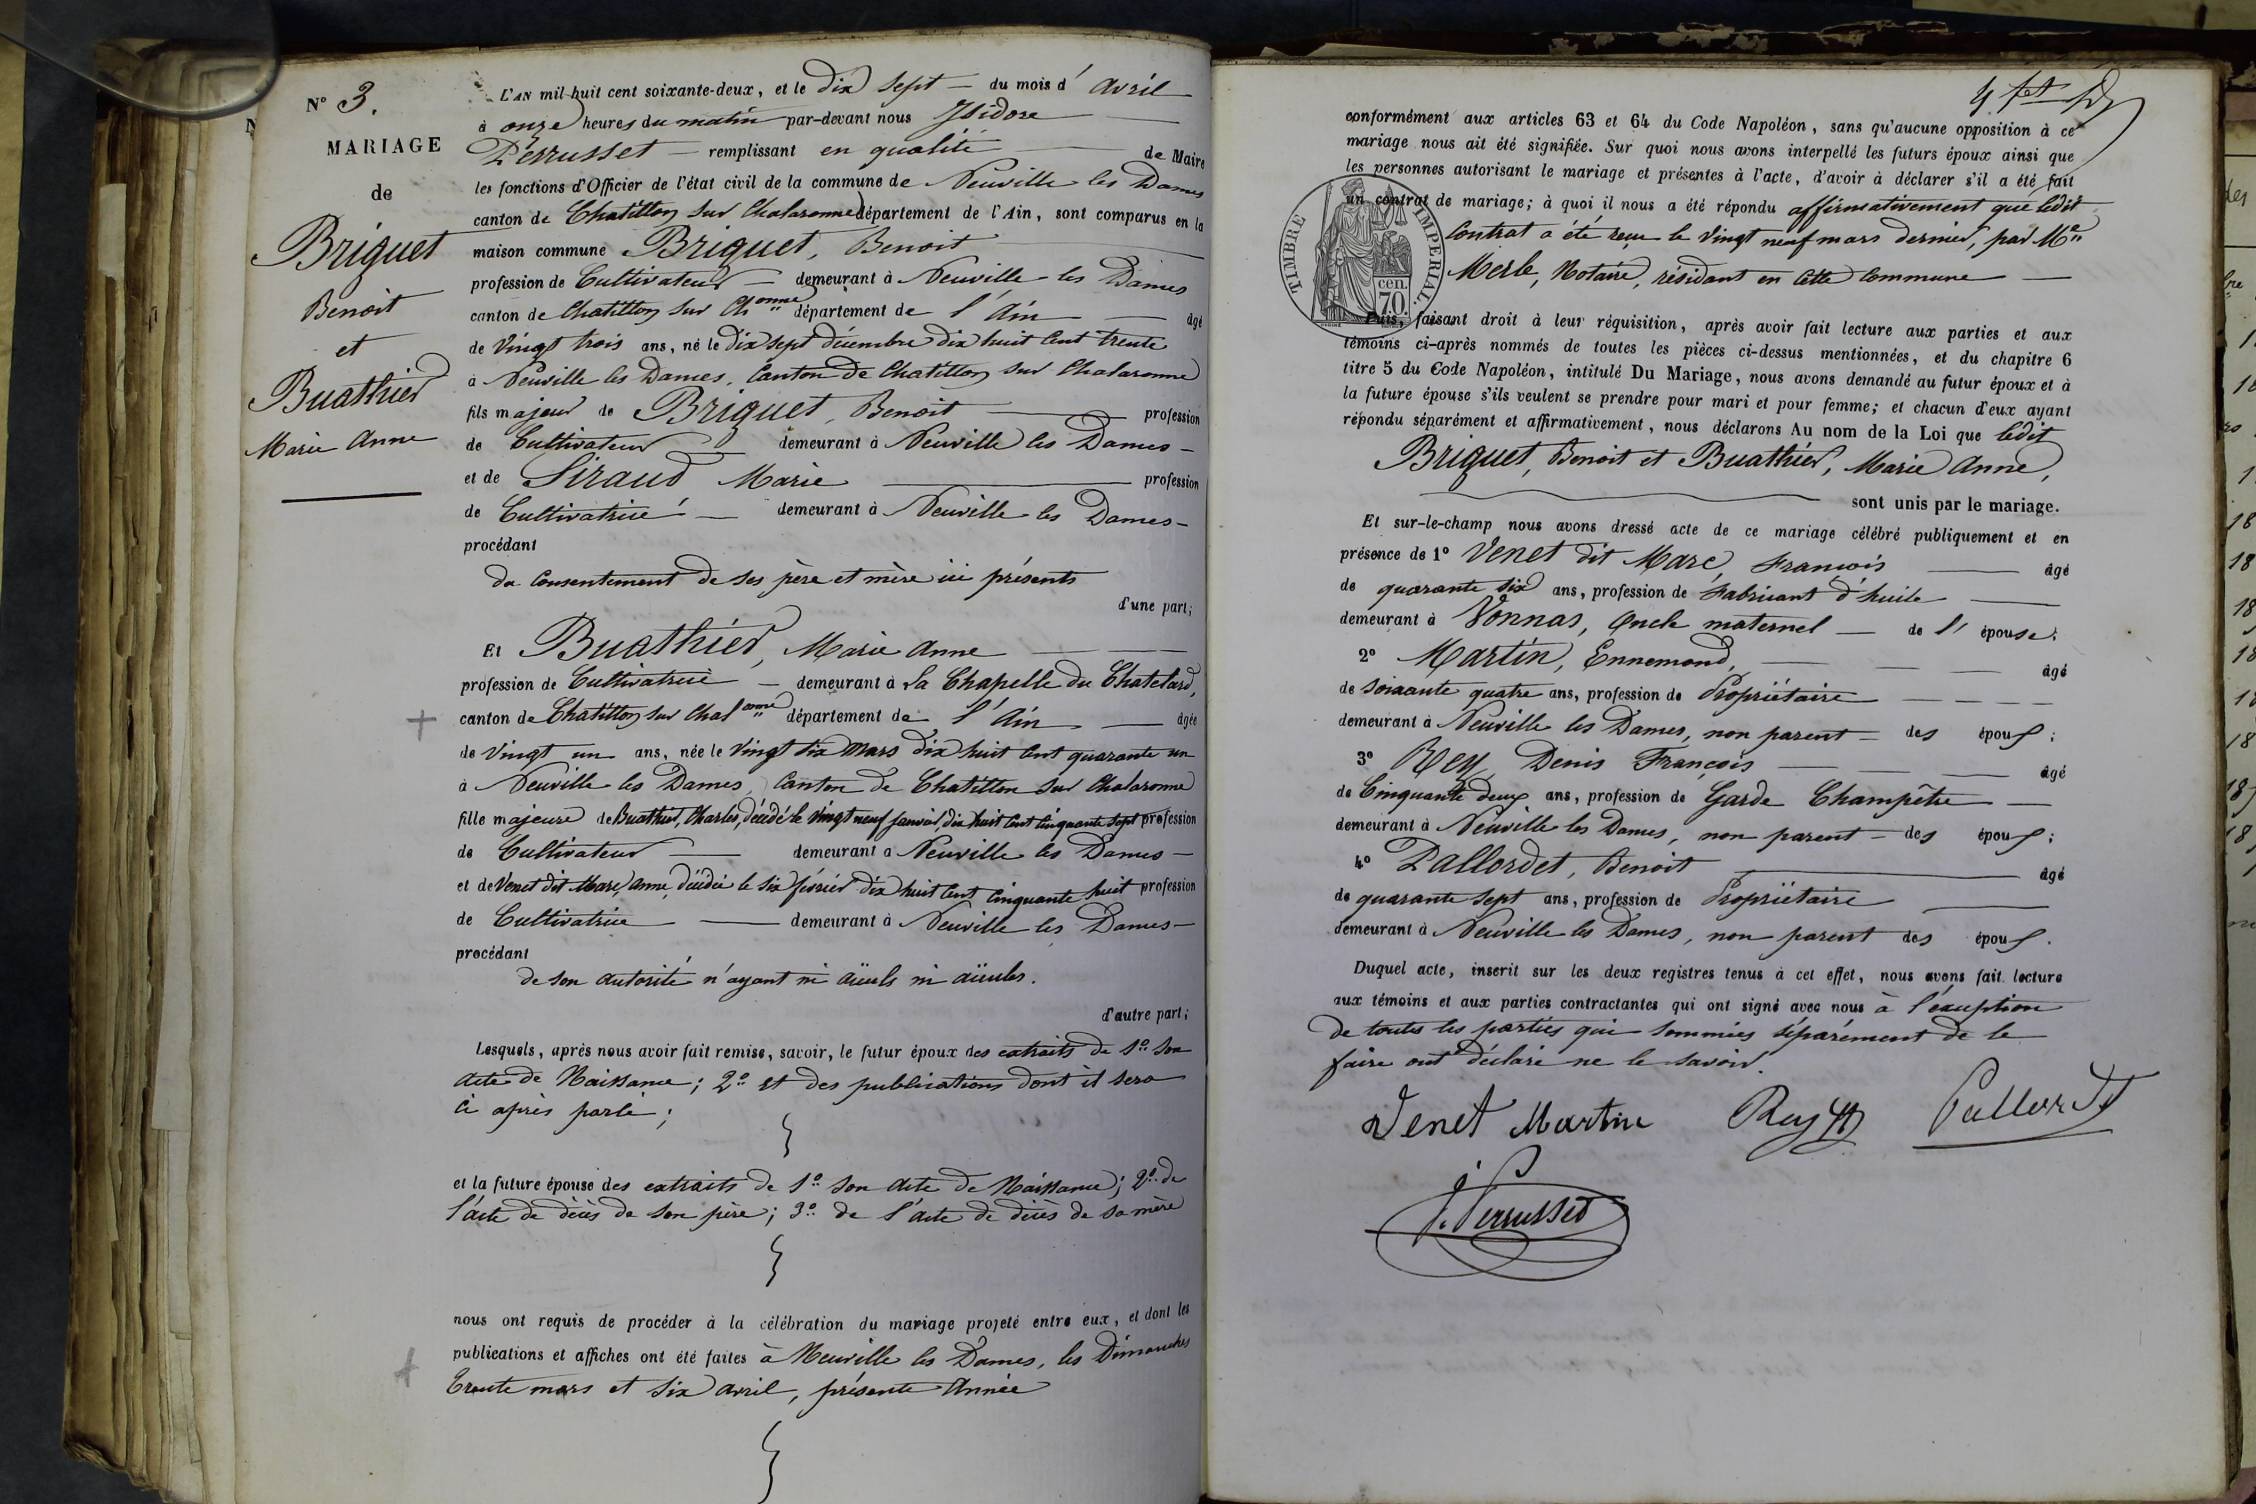 N° 3.
MARIAGE
de
Briguet
Benoit
et
Buathier
Marie Anne
L'AN mil huit cent soixante-deux, et le dix sept du mois d'avril
à onze heures du matin par-devant nous Isidore
Perrusset remplissant en qualité de Maire
les fonctions d'Officier de l'état civil de la commune de Neuville les Dames
canton de Chatillon sur Chalaronne département de l'Ain, sont comparus en la
maison commune Briguet, Benoit
profession de Cultivateur demeurant à Neuville les Dames
canton de Chatillon sur Ch.onne département de l'Ain âgé
de Vingt trois ans, né le dix sept décembre dix huit cent trente
à Neuville les Dames, Canton de Chatillon sur Chalaronne
fils majeur de Briguet, Benoit profession
de Cultivateur demeurant à Neuville les Dames
et de Siraud Marie profession
de Cultivatrice demeurant à Neuville les Dames
procédant
du consentement de ses père et mère ici présents
d'une part;
Et Buathier, Marie Anne
profession de Cultivatrice demeurant à La Chapelle du Chatelard,
canton de Chatillon sur Chal.onne département de l'Ain âgée
de Vingt un ans, née le Vingt six mars dix huit cent quarante un
à Neuville les Dames, Canton de Chatillon sur Chalaronne
fille majeure de Buathier, Charles, décédé le Vingt neuf janvier, dix huit cent cinquante sept profession
de Cultivateur demeurant à Neuville les Dames
et de Venet dit Mare, Anne, décédée le six février dix huit cent cinquante huit profession
de Cultivatrice demeurant à Neuville les Dames
procédant
de son autorité n'ayant ni aïeuls ni aïeules.
d'autre part;
Lesquels, après nous avoir fait remise, savoir, le futur époux des extraits de 1° son
acte de Naissance; 2° et des publications dont il sera
ci après parlé;
et la future épouse des extraits de 1° son acte de Naissance; 2° de
l'acte de décès de son père; 3° de l'acte de décès de sa mère
nous ont requis de procéder à la célébration du mariage projeté entre eux, et dont les
publications et affiches ont été faites à Neuville les Dames, les Dimanches
trente mars et six avril, présente Année
conformément aux articles 63 et 64 du Code Napoléon, sans qu'aucune opposition à ce
mariage nous ait été signifiée. Sur quoi nous avons interpellé les futurs époux ainsi que
les personnes autorisant le mariage et présentes à l'acte, d'avoir à déclarer s'il a été fait
un contrat de mariage; à quoi il nous a été répondu affirmativement que ledit
Contrat a été reçu le Vingt neuf mars dernier, par Me
Merle, Notaire, résidant en cette commune
TIMBRE IMPERIAL.
cen.
70.
Puis, faisant droit à leur réquisition, après avoir fait lecture aux parties et aux
témoins ci-après nommés de toutes les pièces ci-dessus mentionnées, et du chapitre 6
titre 5 du Code Napoléon, intitulé Du Mariage, nous avons demandé au futur époux et à
la future épouse s'ils veulent se prendre pour mari et pour femme; et chacun d'eux ayant
répondu séparément et affirmativement, nous déclarons Au nom de la Loi que ledit
Briguet, Benoit et Buathier, Marie Anne,
sont unis par le mariage.
Et sur-le-champ nous avons dressé acte de ce mariage célébré publiquement et en
présence de 1° Venet dit Mare, François âgé
de quarante six ans, profession de Fabricant d'huile
demeurant à Vonnas, Oncle maternel de l'épouse;
2° Martin, Ennemond, âgé
de soixante quatre ans, profession de Propriétaire
demeurant à Neuville les Dames, non parent des époux;
3° Rey, Denis François âgé
de Cinquante deux ans, profession de Garde Champêtre
demeurant à Neuville les Dames, non parent des époux;
4° Pallordet, Benoit âgé
de quarante sept ans, profession de Propriétaire
demeurant à Neuville les Dames, non parent des époux.
Duquel acte, inscrit sur les deux registres tenus à cet effet, nous avons fait lecture
aux témoins et aux parties contractantes qui ont signé avec nous à l'exception
de toutes les parties qui sommées séparément de le
faire ont déclaré ne le savoir.
Venet Martin Rey Pallordet
J. Perrusset